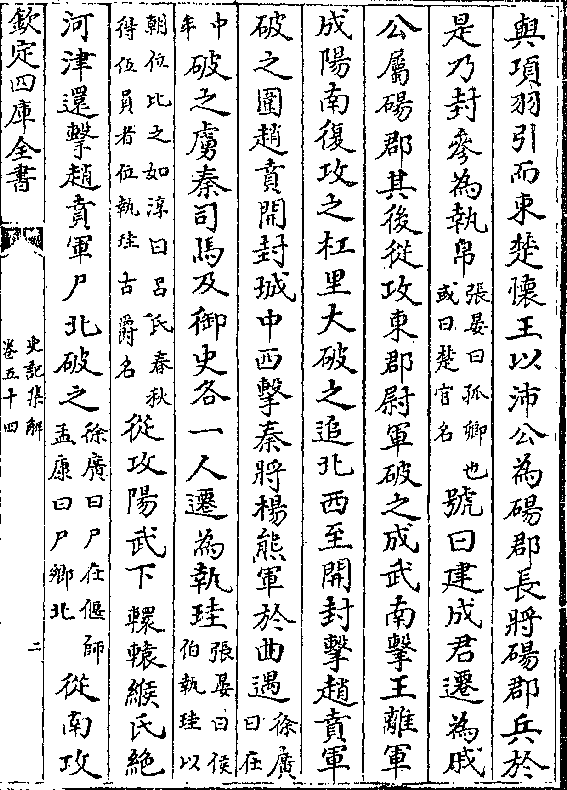 與項羽引而東楚懷王以沛公為碭郡長將碭郡兵於
是乃封參為執帛張晏曰孤卿也或曰楚官名號曰建成君遷為戚
公屬碭郡其後從攻東郡尉軍破之成武南擊王離軍
成陽南復攻之杠里大破之追北西至開封擊趙賁軍
破之圍趙賁開封城中西擊秦將楊熊軍於曲遇徐廣曰在
中牟破之虜秦司馬及御史各一人遷為執珪張晏曰侯伯執珪以
朝位比之如淳曰呂氏春秋得伍員者位執珪古爵名從攻陽武下轘轅緱氏絕
河津還擊趙賁軍尸北破之徐廣曰尸在偃師孟康曰尸鄉北從南攻
欽定四庫全書
史記集解
卷五十四
二